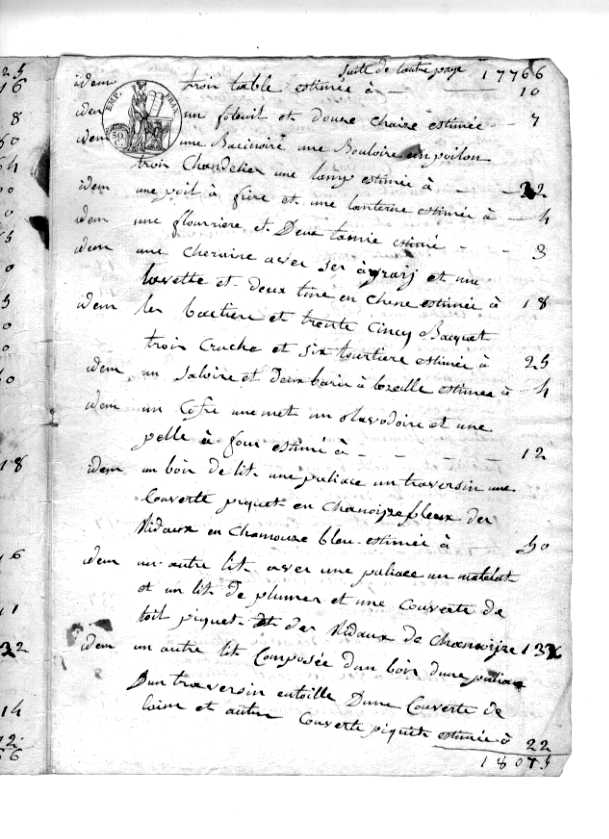 Suite de lautre page 17766
idem trois table estimée à — 10
idem un foteuil et douze chaise estimée - 7
idem une Bacinoire une Bouloire un poilon
trois Chandelier une lamp estimée à - - 22
idem une poil à frire et une lanterne estimée à - 4
idem une flourriere et Deux tamie estimé - - 3
idem une et une
lavette et deux tine en Chene estimée à 18
idem les et trente Cincq Bacquet
trois Cruche et six tourtiere estimée à 25
idem un Saloire et Deux baris à estimée à 4
idem un Cofre une met un et une
pelle à four estimé à - - - - - 12
idem un bois de lit une paliace un traversin une
Couverte piquet en des
Ridaux en bleu estimée à 50
idem un autre lit avec une paliace un matelat
et un lit De plumes et une Couverte de
toil piquet et des Ridaux de
idem un autre lit Composée dun bois dune paliace
Dun traversin entoille Dune Couverte de
laine et autre Couverte piquet estimée à 22
18075
25
16
8
0
5
0
0
18
16
11
32
14